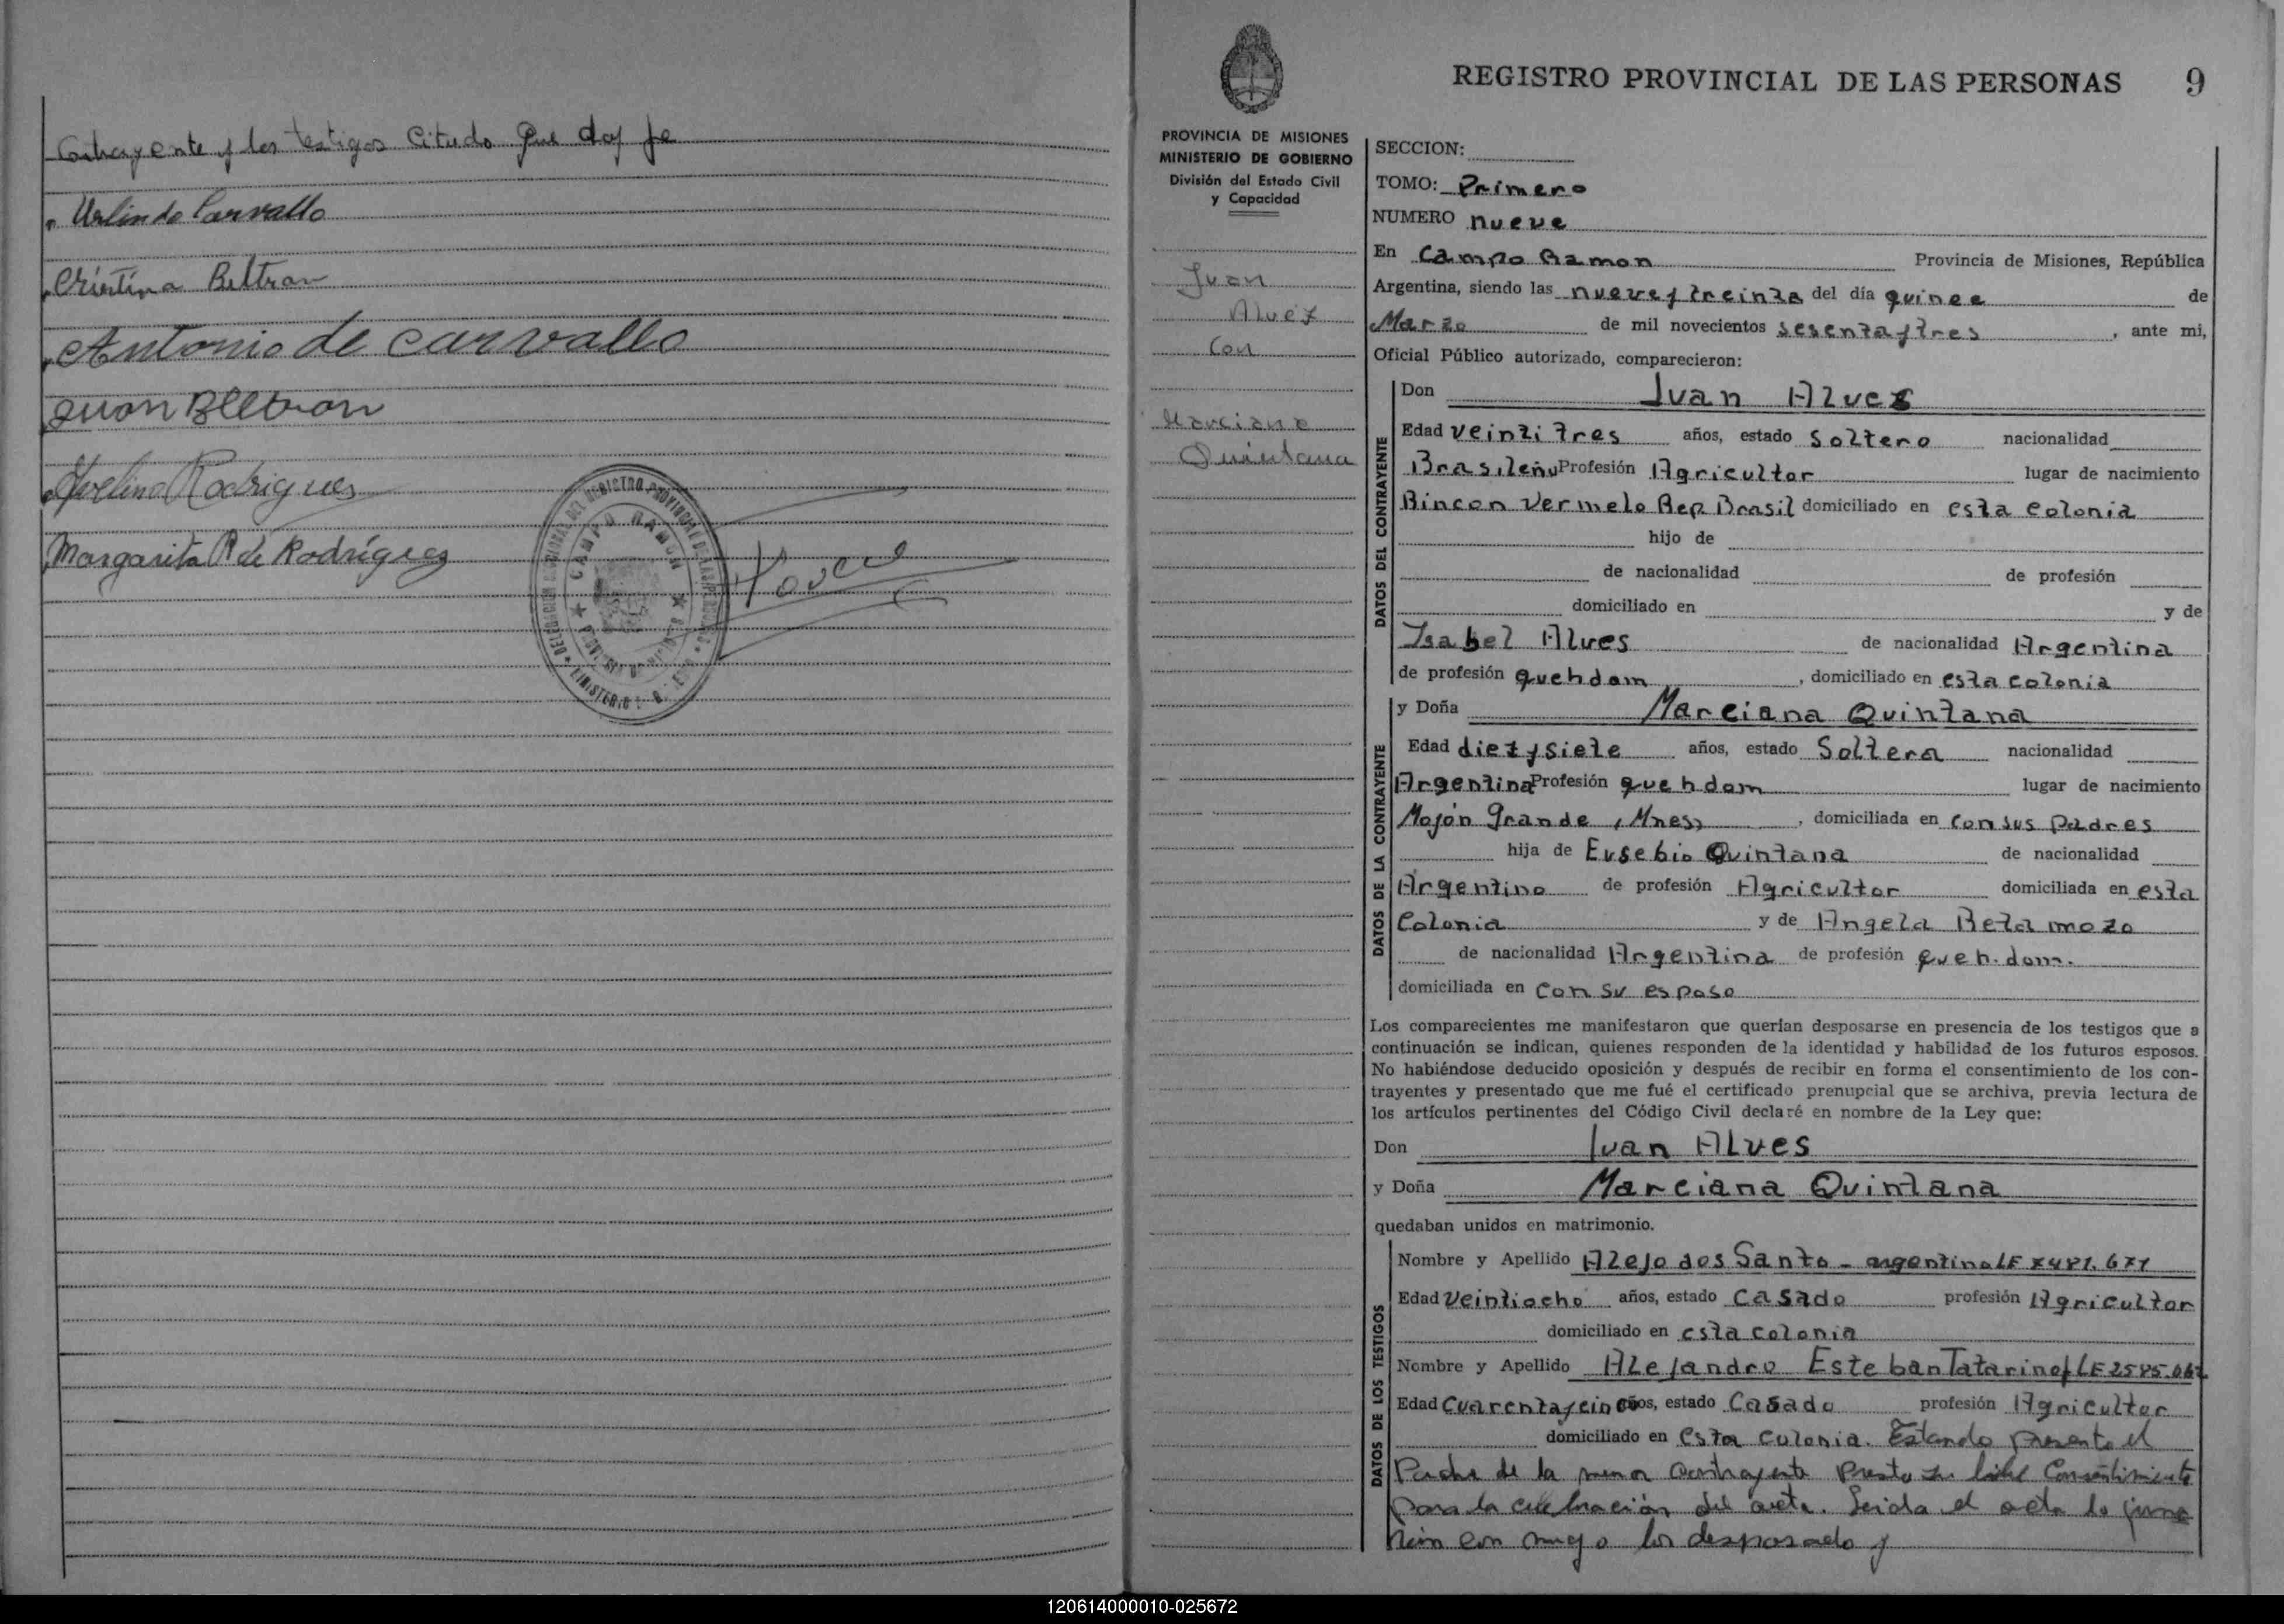 Contrayente y los testigos citado que doy fe
Urlindo Carvallo
Cristina Beltran
Antonio de carvallo
Juan Beltran
Avelino Rodrigues
Margarita P de Rodríguez
CAMPO RAMON
REGISTRO PROVINCIAL DE LAS PERSONAS 9
PROVINCIA DE MISIONES
MINISTERIO DE GOBIERNO
División del Estado Civil
y Capacidad
Juan
Alvez
Con
Marciana
Quintana
SECCION:
TOMO: Primero
NUMERO nueve
En Campo Ramon Provincia de Misiones, República
Argentina, siendo las nueve y treinta del día quince de
Marzo de mil novecientos sesenta y tres, ante mi,
Oficial Público autorizado, comparecieron:
DATOS DEL CONTRAYENTE
Don Juan Alves
Edad veinti tres años, estado Soltero nacionalidad
Brasileño Profesión Agricultor lugar de nacimiento
Rincon Vermelo Rep Brasil domiciliado en esta Colonia
hijo de
de nacionalidad de profesión
domiciliado en y de
Isabel Alves de nacionalidad Argentina
de profesión quehdom, domiciliado en esta colonia
DATOS DE LA CONTRAYENTE
y Doña Marciana Quintana
Edad diez y siete años, estado Soltera nacionalidad
Argentina Profesión queh dom lugar de nacimiento
Mojón Grande, Mnes, domiciliada en con sus padres
hija de Eusebio Quintana de nacionalidad
Argentino de profesión Agricultor domiciliada en esta
Colonia y de Angela Betamozo
de nacionalidad Argentina de profesión queh. dom.
domiciliada en con su esposo
Los comparecientes me manifestaron que querían desposarse en presencia de los testigos que a
continuación se indican, quienes responden de la identidad y habilidad de los futuros esposos.
No habiéndose deducido oposición y después de recibir en forma el consentimiento de los con-
trayentes y presentado que me fué el certificado prenupcial que se archiva, previa lectura de
los artículos pertinentes del Código Civil declaré en nombre de la Ley que:
Don Juan Alves
y Doña Marciana Quintana
quedaban unidos en matrimonio.
DATOS DE LOS TESTIGOS
Nombre y Apellido Alejo dos Santo - argentino LE 7481.671
Edad veintiocho años, estado Casado profesión Agricultor
domiciliado en esta colonia
Nombre y Apellido Alejandro Esteban Tatarinof LE 2585.062
Edad cuarenta y cinco años, estado Casado profesión Agricultor
domiciliado en esta colonia. Estando presente el
Padre de la menor contrayente Presto su libre Consentimiento
para la celebración del acto. Leida el acta la firma
con migo los desposado y
120614000010-025672